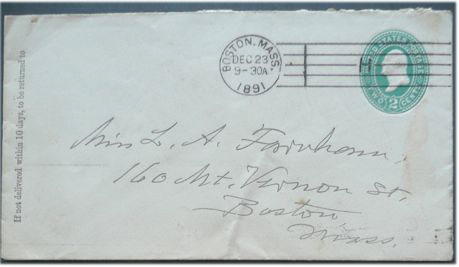 If not delivered within 10 days, to be returned to
BOSTON, MASS.
DEC 23
9-30A
1891
UNITED STATES POSTAGE
TWO 2 CENTS
Miss L. A. Farnham.
160 Mt. Vernon St.
Boston
Mass.